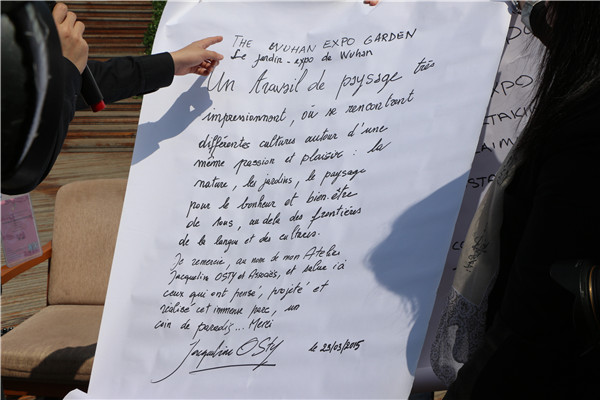 THE WUHAN EXPO GARDEN
Le jardin-expo de Wuhan
Un travail de paysage très
impressionnant, où se rencontrent
différentes cultures autour d'une
même passion et plaisir : la
nature, les jardins, le paysage
pour le bonheur et bien-être
de tous, au delà des frontières
de la langue et des cultures.
Je remercie, au nom de mon Atelier
Jacqueline OSTY et Associés, et salue ici
ceux qui ont pensé, projeté et
réalisé cet immense parc, un
coin de paradis... Merci
Jacqueline OSTY
le 23/03/2015